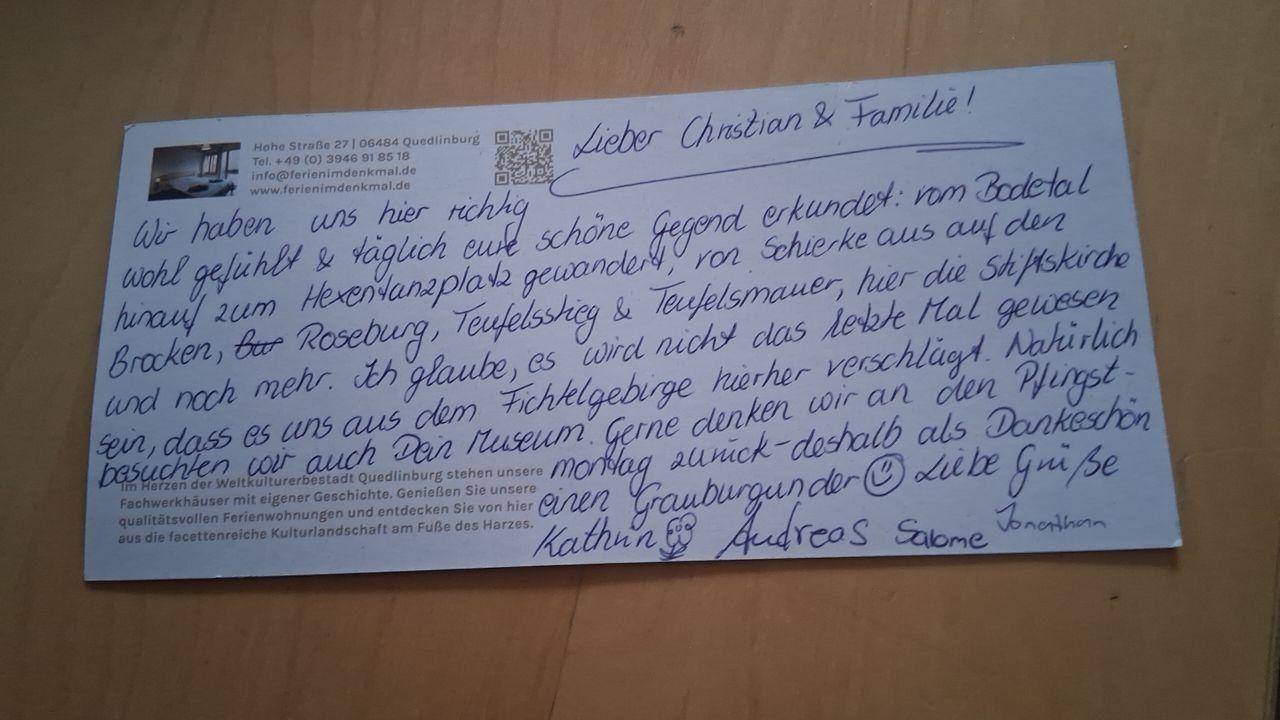 Hohe Straße 27 | 06484 Quedlinburg
Tel. +49 (0) 3946 91 85 18
info@ferienimdenkmal.de
www.ferienimdenkmal.de
Lieber Christian & Familie!
Wir haben uns hier richtig
wohl gefühlt & täglich eure schöne Gegend erkundet: vom Bodetal
hinauf zum Hexentanzplatz gewandert, von Schierke aus auf den
Brocken, Roseburg, Teufelsstieg & Teufelsmauer, hier die Stiftskirche
und noch mehr. Ich glaube, es wird nicht das letzte Mal gewesen
sein, dass es uns aus dem Fichtelgebirge hierher verschlägt. Natürlich
besuchten wir auch Dein Museum. Gerne denken wir an den Pfingst-
montag zurück - deshalb als Dankeschön
einen Grauburgunder ☺ Liebe Grüße
Kathrin Andreas Salome Jonathan
Im Herzen der Weltkulturerbestadt Quedlinburg stehen unsere
Fachwerkhäuser mit eigener Geschichte. Genießen Sie unsere
qualitätsvollen Ferienwohnungen und entdecken Sie von hier
aus die facettenreiche Kulturlandschaft am Fuße des Harzes.